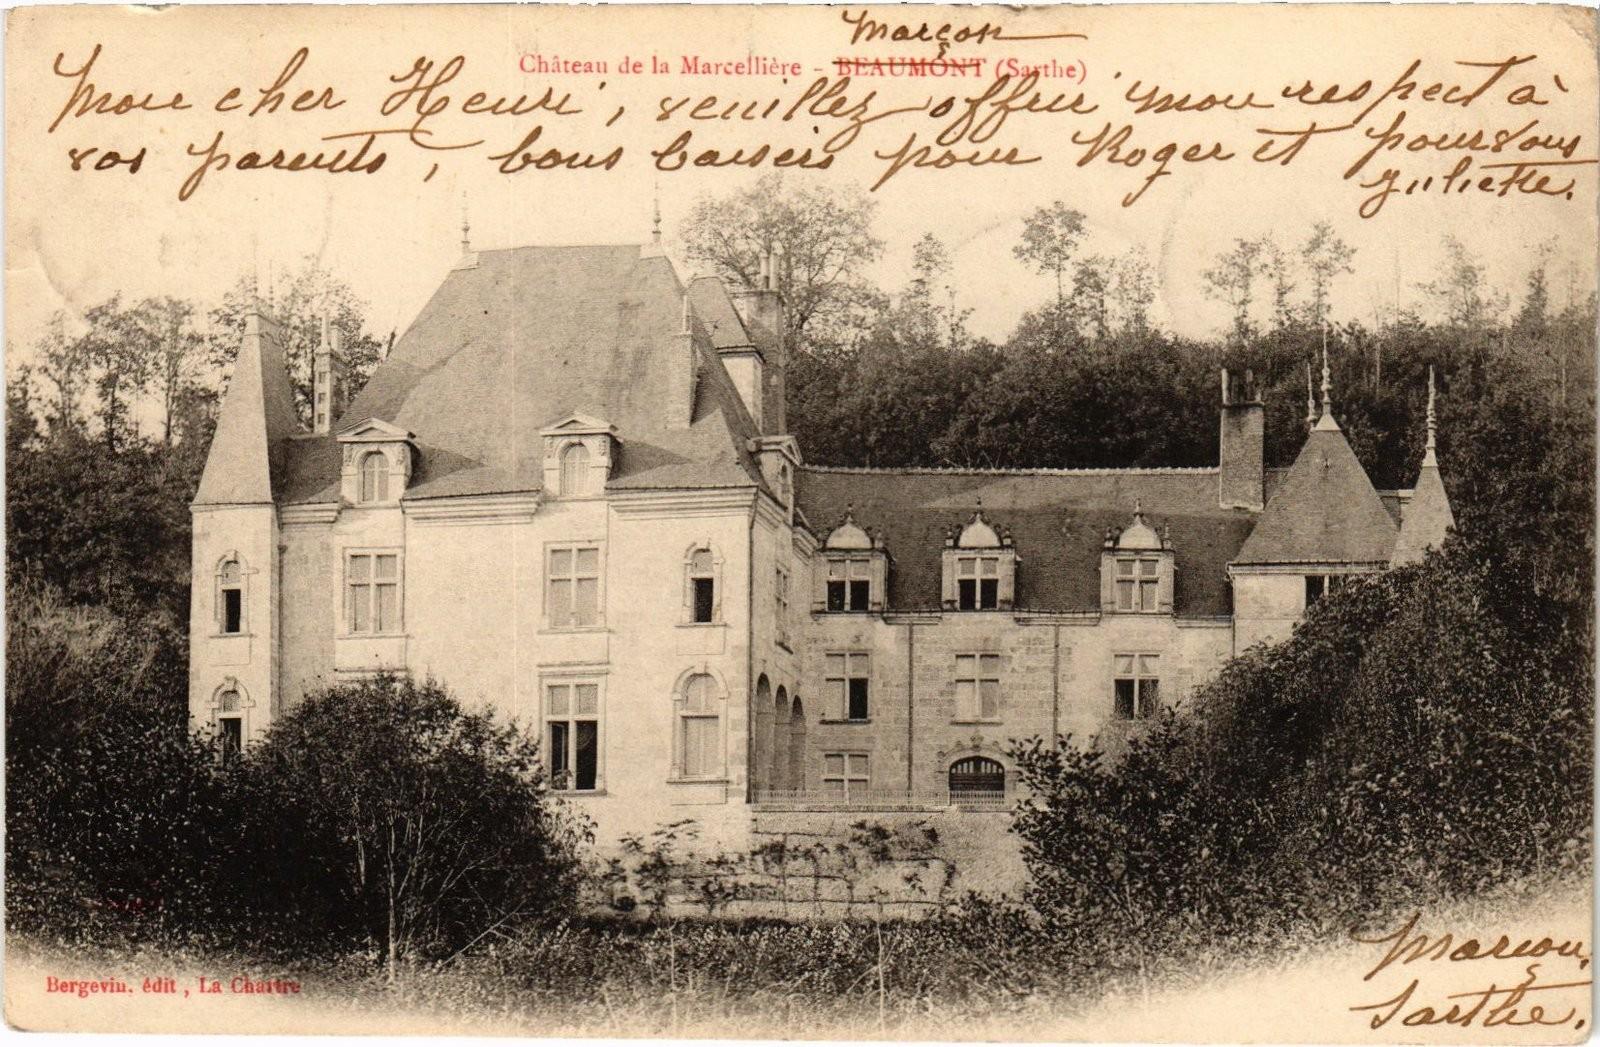 Marçon
Château de la Marcellière - BEAUMONT (Sarthe)
Mon cher Henri, veuillez offrir mon respect à
vos parents, bons baisers pour Roger et pour vous
Juliette.
Marçon,
Sarthe.
Bergevin, édit, La Chartre